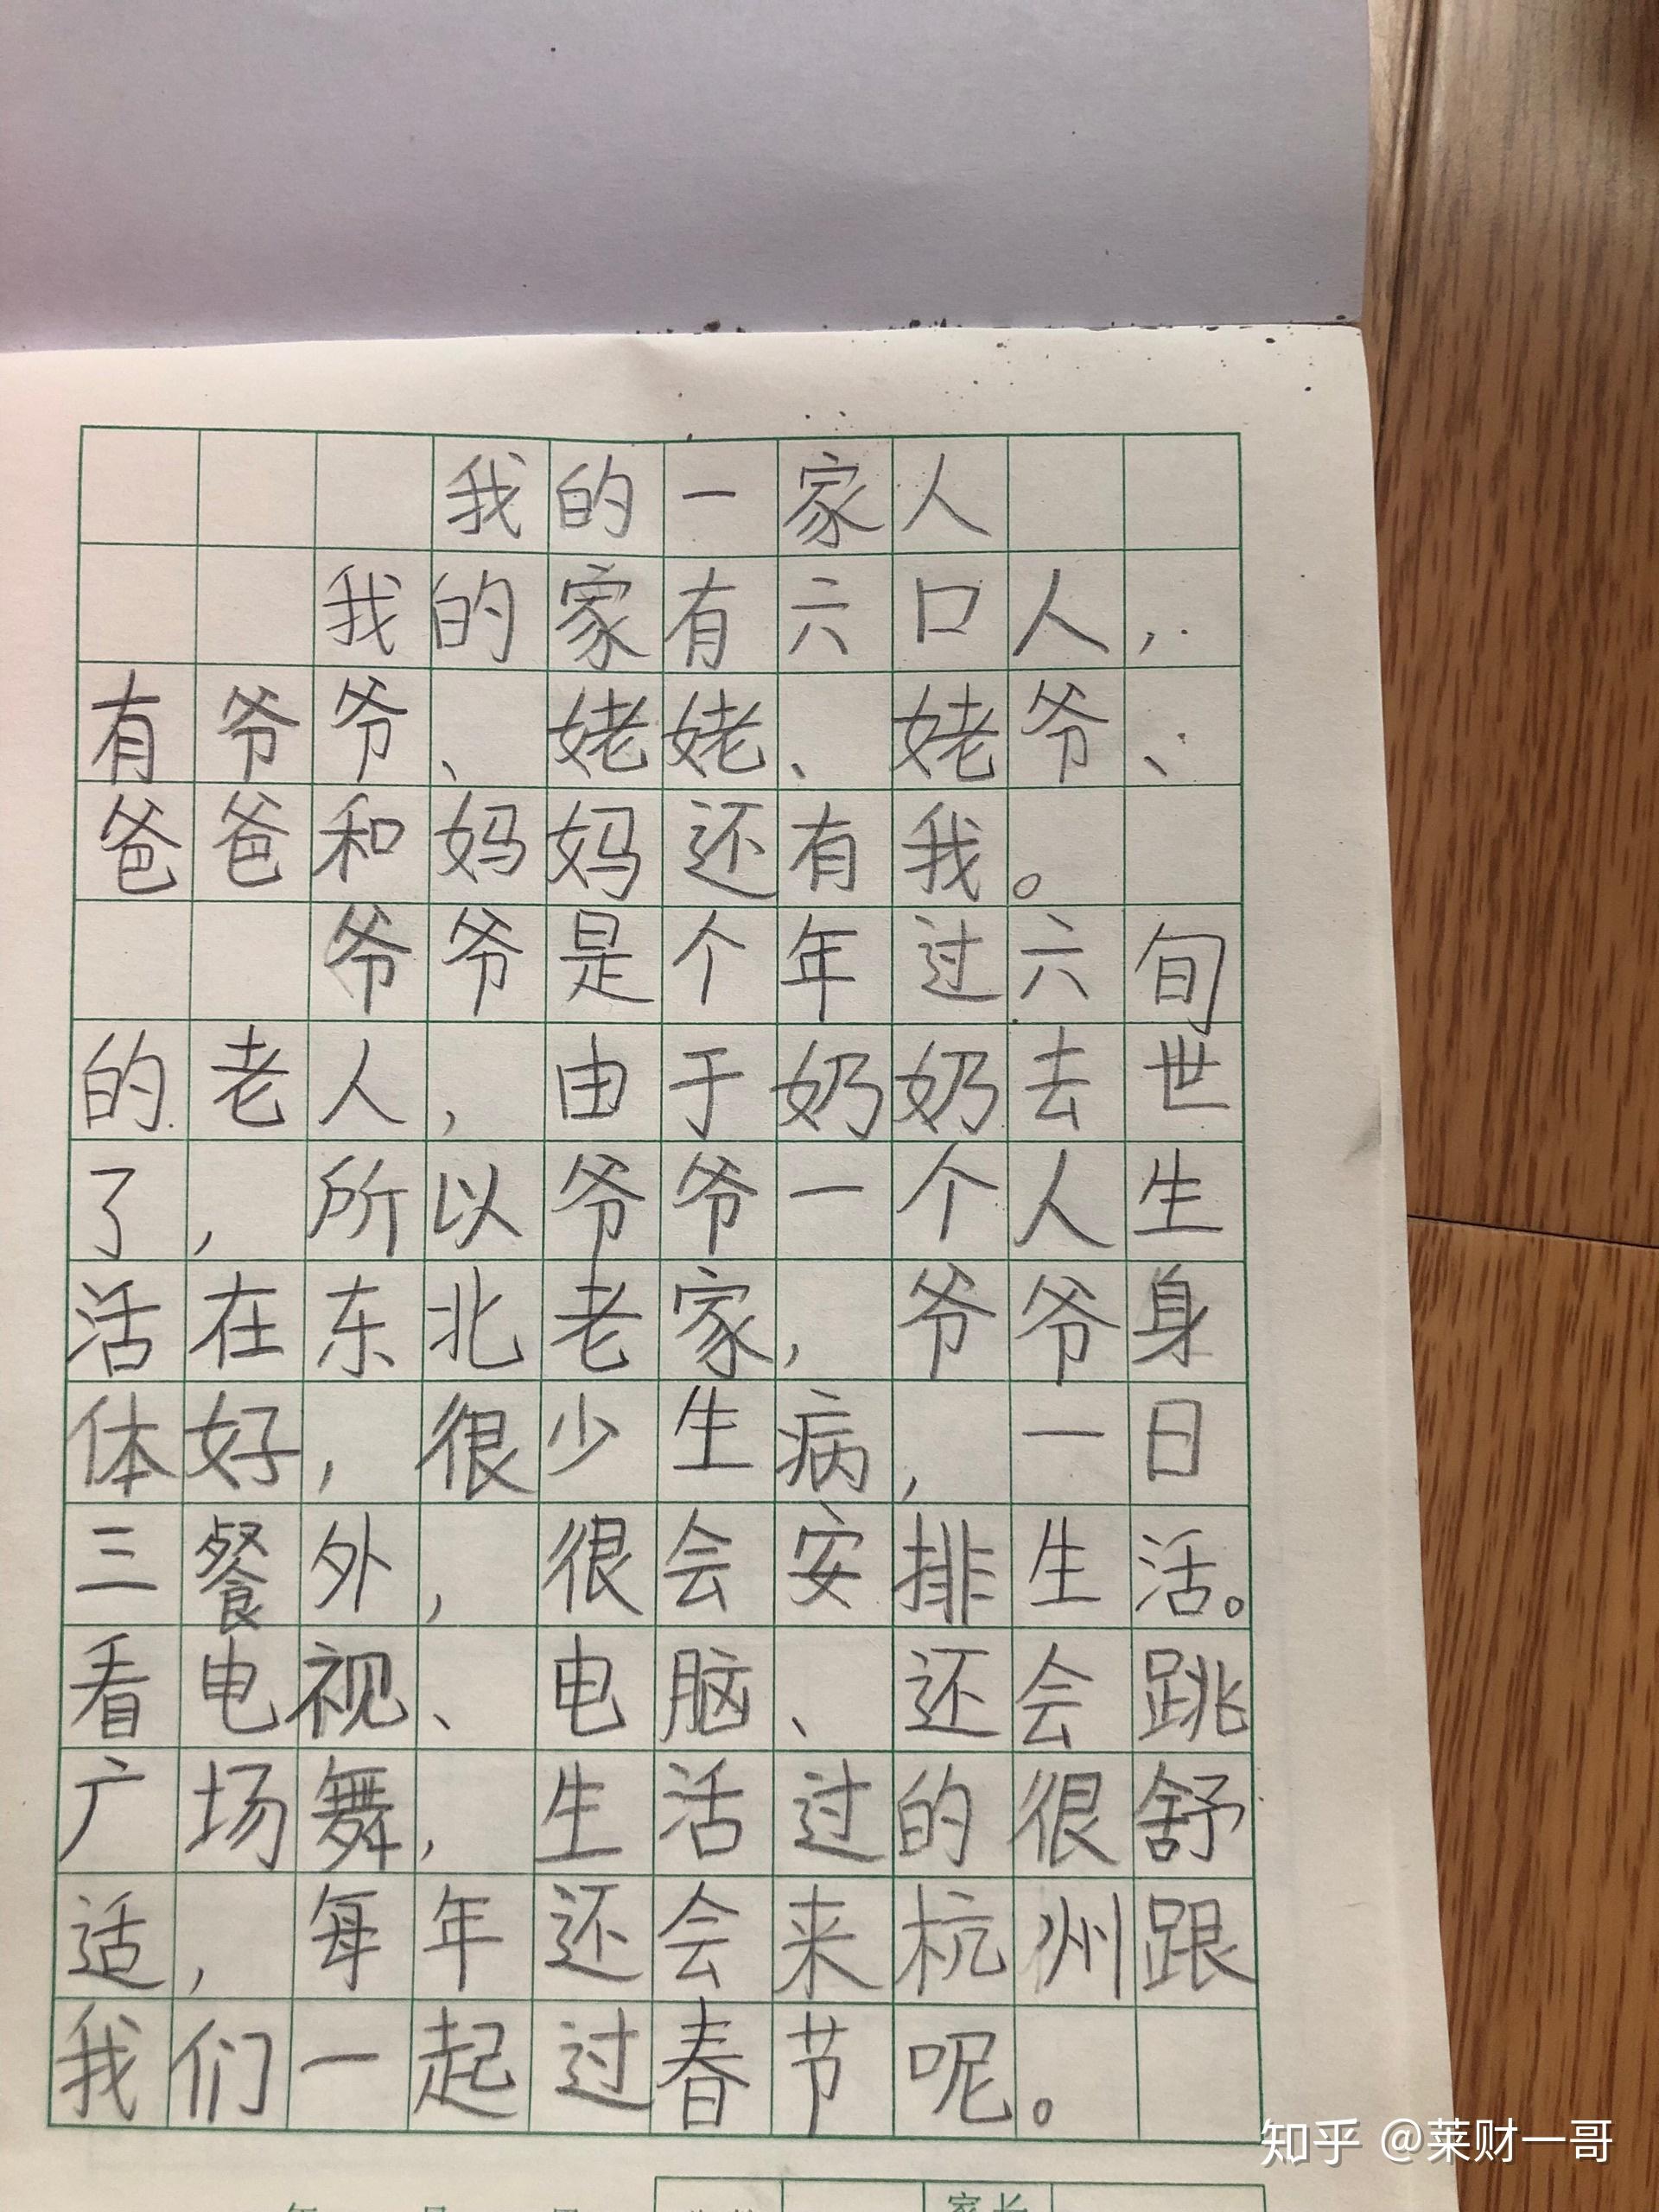 我的一家人
我的家有六口人，
有爷爷、姥姥、姥爷、
爸爸和妈妈还有我。
爷爷是个年过六旬
的老人，由于奶奶去世
了，所以爷爷一个人生
活在东北老家，爷爷身
体好，很少生病，一日
三餐外，很会安排生活。
看电视、电脑、还会跳
广场舞，生活过的很舒
适，每年还会来杭州跟
我们一起过春节呢。
家长
知乎 @莱财一哥